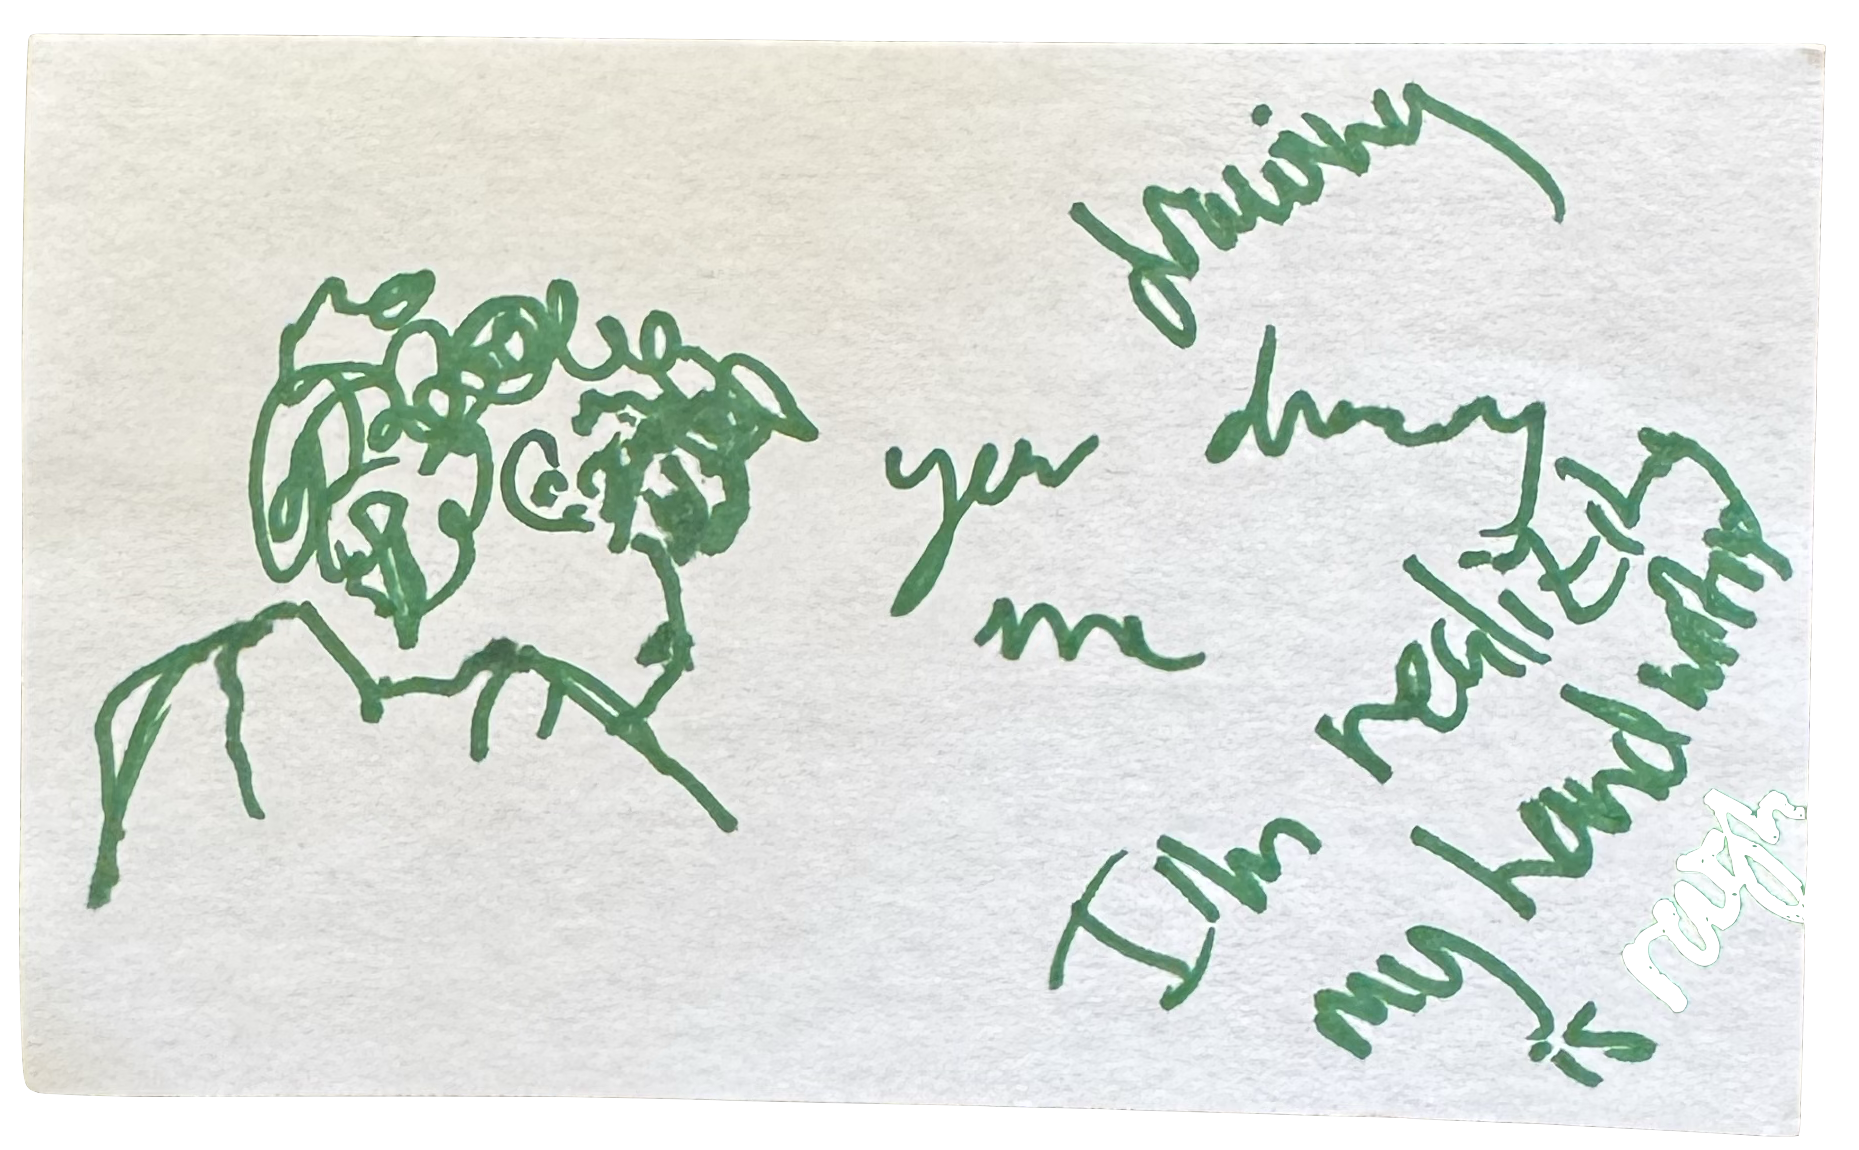 drawing
you drawing
me
I'm realizing
my handwriting
is rough